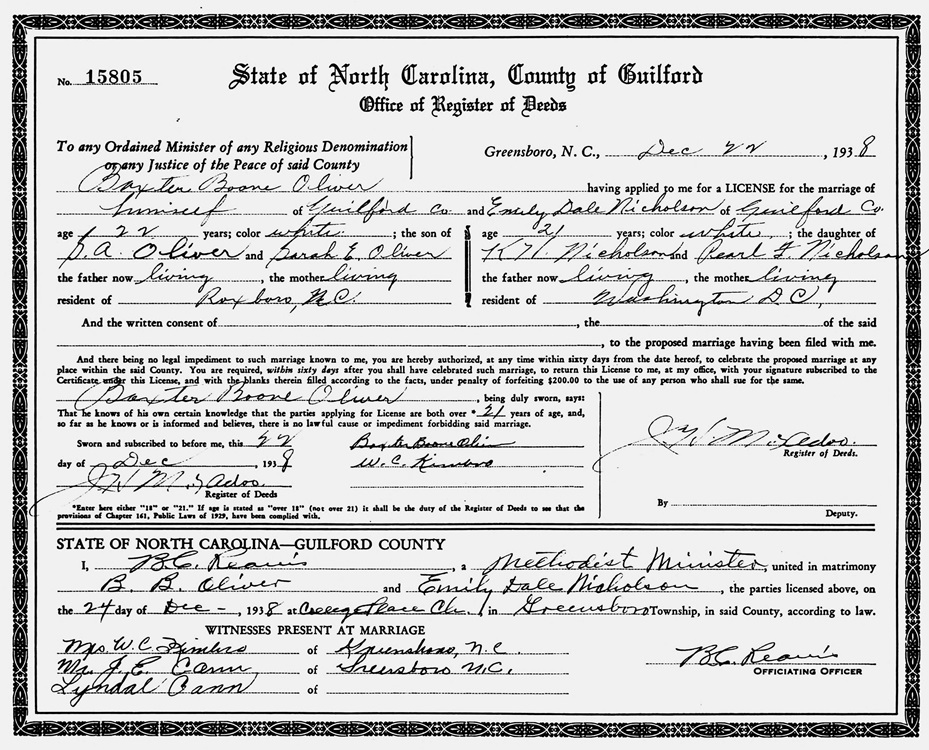 No. 15805
State of North Carolina, County of Guilford
Office of Register of Deeds
To any Ordained Minister of any Religious Denomination
or any Justice of the Peace of said County
Greensboro, N. C., Dec 22, 1938
Baxter Boone Oliver having applied to me for a LICENSE for the marriage of
himself of Guilford Co. and Emily Dale Nicholson of Guilford Co.
age 22 years; color white; the son of
S. A. Oliver and Sarah E. Oliver
the father now living, the mother living
resident of Roxboro, N.C.
age 21 years; color white; the daughter of
Nicholson and Pearl F. Nicholson
the father now living, the mother living
resident of Washington D.C.,
And the written consent of , the of the said
, to the proposed marriage having been filed with me.
And there being no legal impediment to such marriage known to me, you are hereby authorized, at any time within sixty days from the date hereof, to celebrate the proposed marriage at
place within the said County. You are required, within sixty days after you shall have celebrated such marriage, to return this License to me, at my office, with your signature subscribed to the
Certificate under this License, and with the blanks therein filled according to the facts, under penalty of forfeiting $200.00 to the use of any person who shall sue for the same.
Baxter Boone Oliver, being duly sworn, says:
That he knows of his own certain knowledge that the parties applying for License are both over *21 years of age, and,
so far as he knows or is informed and believes, there is no lawful cause or impediment forbidding said marriage.
Sworn and subscribed to before me, this 22
day of Dec, 1938
J H McAdoo.
Register of Deeds
Baxter Boone Oliver
W. C. Kimbro
McAdoo.
Register of Deeds.
By
Deputy.
*Enter here either "18" or "21." If age is stated as "over 18" (not over 21) it shall be the duty of the Register of Deeds to see that the
provisions of Chapter 161, Public Laws of 1929, have been complied with.
STATE OF NORTH CAROLINA—GUILFORD COUNTY
I, B.C. Reavis, a Methodist Minister, united in matrimony
B. B. Oliver and Emily Dale Nicholson, the parties licensed above, on
the 24 day of Dec-, 1938 at College Place Ch. in Greensboro Township, in said County, according to law.
WITNESSES PRESENT AT MARRIAGE
Mrs. W. C. Kimbro of Greensboro, N.C.
J. E. Cann of Greensboro N.C.
Lyndal Cann of
B.C. Reavis
OFFICIATING OFFICER